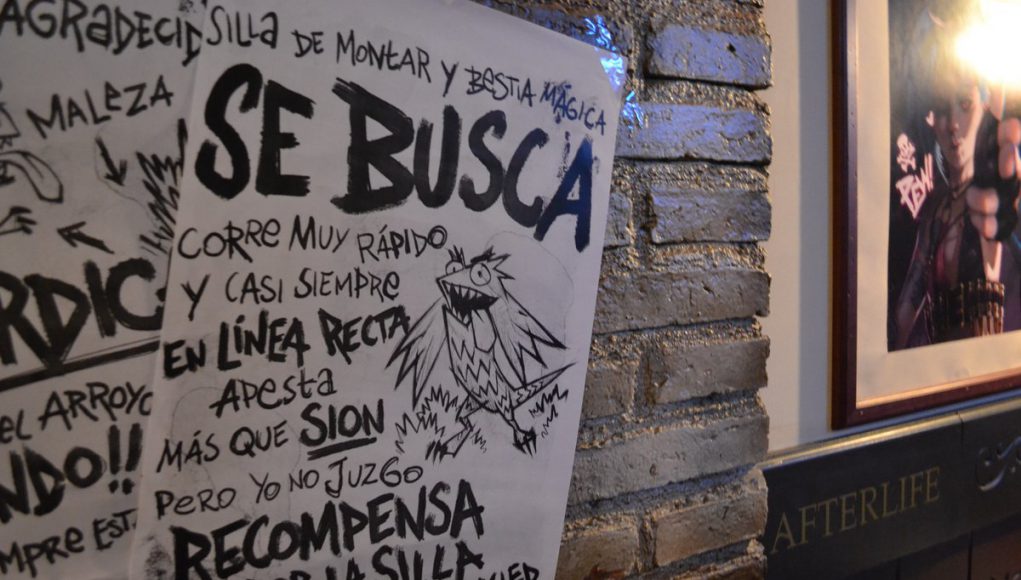 AGRADECID
MALEZA
RDIC
EL ARROYO
NDO!!
MPRE EST
SILLA DE MONTAR Y BESTIA MÁGICA
SE BUSCA
CORRE MUY RÁPIDO
Y CASI SIEMPRE
EN LÍNEA RECTA
APESTA
MÁS QUE SION
PERO YO NO JUZGO
RECOMPENSA
LA SILLA
PEW!
AFTERLIFE